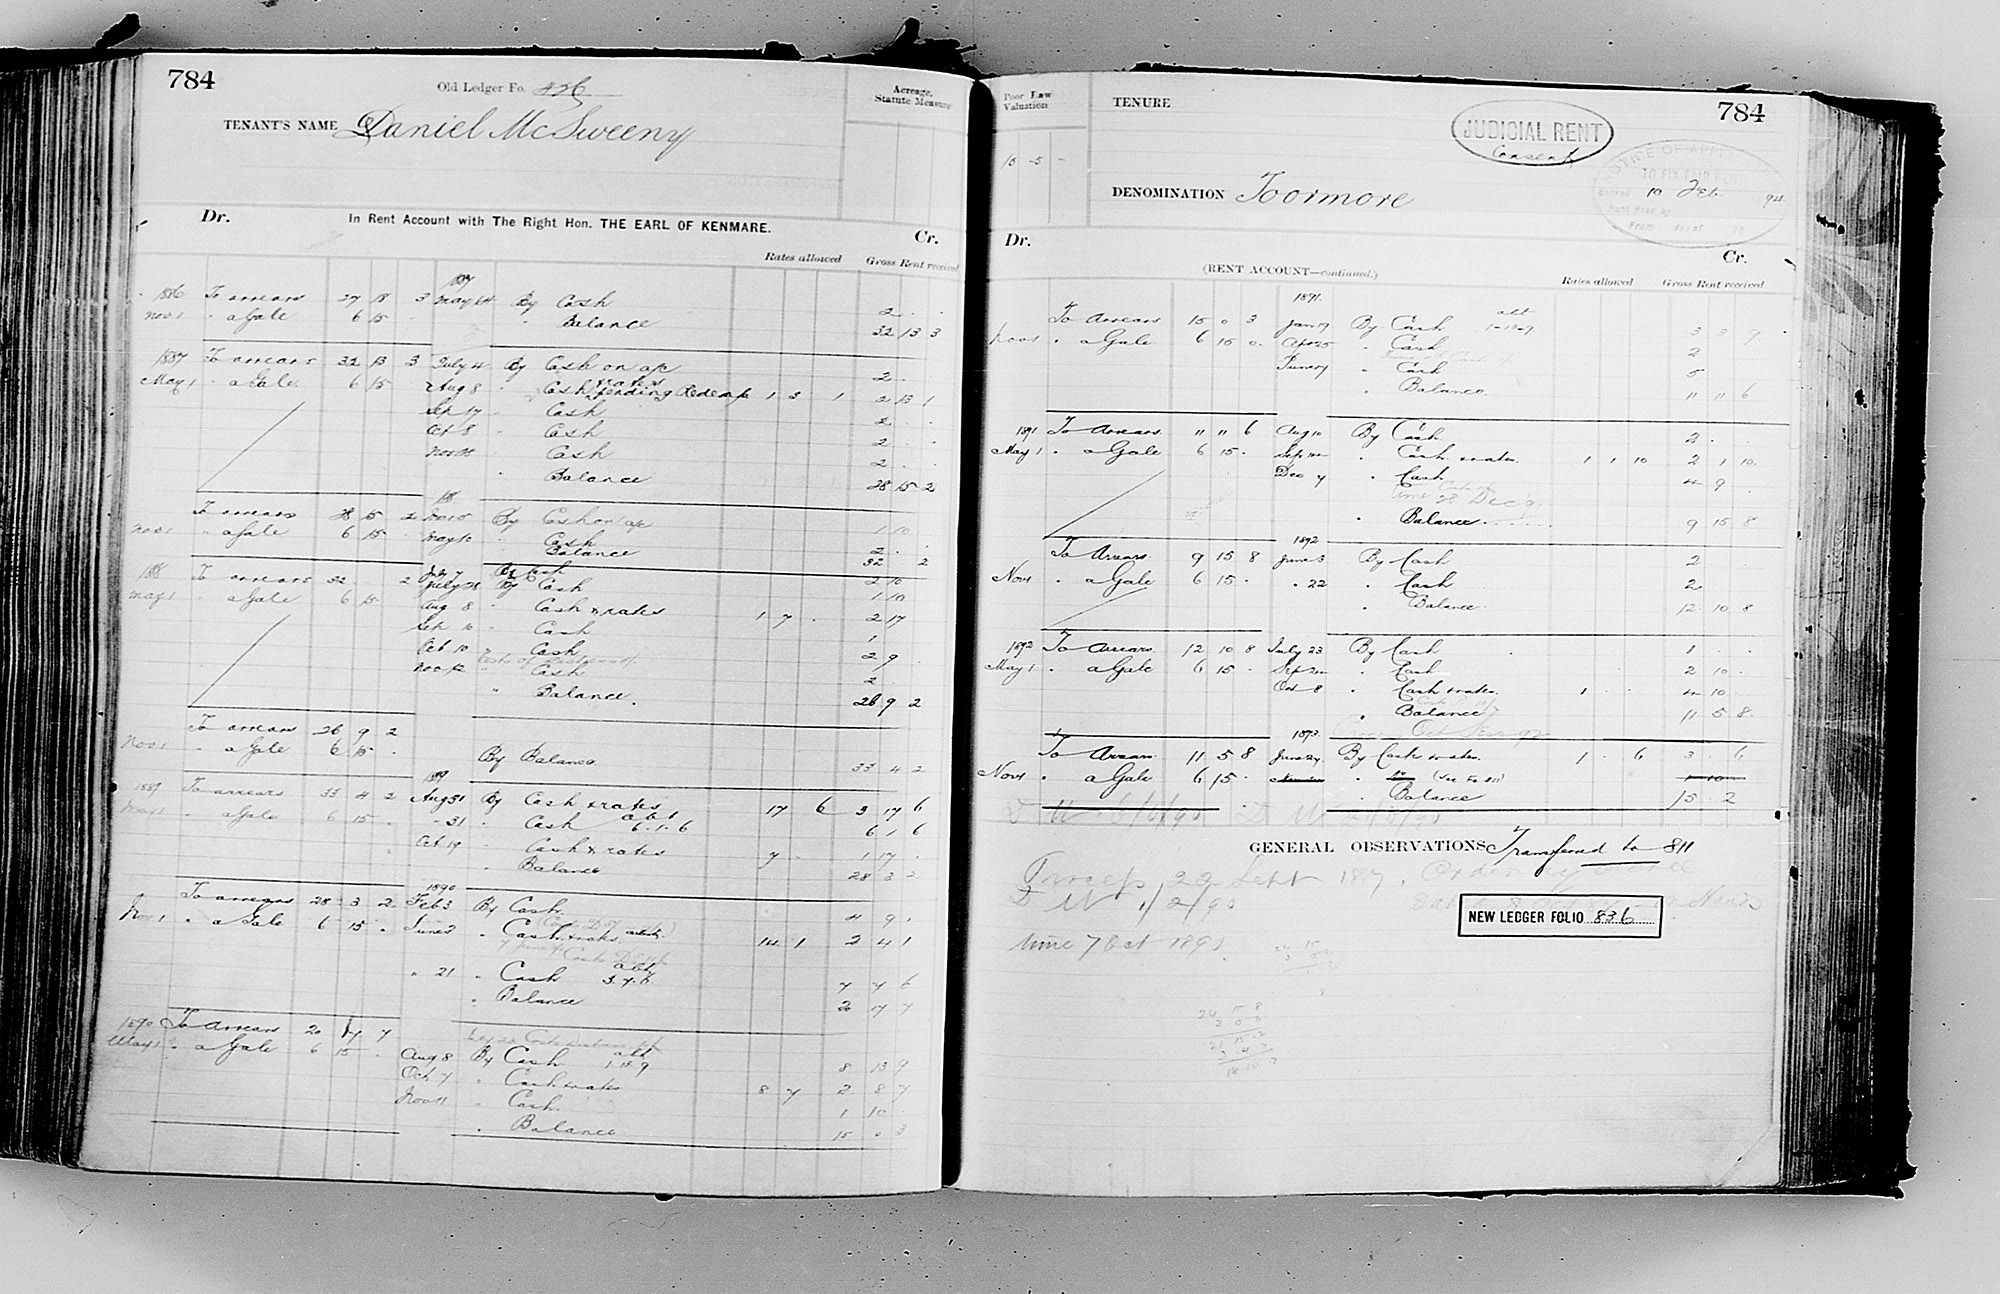 784
Old Ledger Fo. 426
TENANT'S NAME Daniel McSweeny
Acreage, Statute Measure
Dr. In Rent Account with The Right Hon. THE EARL OF KENMARE. Cr.
Rates allowed Gross Rent received
1887
1886 To arrears 27 18 3 May 14 By Cash 2 . .
Nov 1 " a Gale 6 15 " Balance 32 13 3
1887 To arrears 32 13 3 July 4 By Cash on a/c 2 . .
May 1 " a Gale 6 15 Aug 8 " Cash & rates pending Redemp 1 3 1 2 13 1
Sep 17 " Cash 2 . .
Oct 8 " Cash 2 . .
Nov " Cash 2 . .
" Balance 28 15 2
188
To arrears 28 15 2 By Cash on a/c 1 10
Nov 1 " a Gale 6 15 May 12 " Cash 2 . .
Balance 32 . 2
July 7 By Cash 2 10
188 To arrears 32 . 2 July 28 By Cash 1 10
May 1 " a Gale 6 15 Aug 8 " Cash & rates 1 7 . 2 17
Sep 10 " Cash 1
Oct 10 " Cash 2 9
Nov 12 " Cash 2
" Balance 26 9 2
To arrears 26 9 2
Nov 1 " a Gale 6 15 . By Balance 33 4 2
1889
1889 To arrears 33 4 2 Aug 31 By Cash & rates 17 6 3 17 6
May 1 " a Gale 6 15 . " 31 " Cash abt 6.1.6 6 1 6
Oct 19 " Cash & rates 7 . 1 17 .
" Balance 28 3 2
1890
To arrears 28 3 2 Feb 3 By Cash 4 9 .
Nov 1 " a Gale 6 15 . June 2 " Cash & rates 14 1 2 4 1
" 21 " Cash abt 3.7.6 7 7 6
" Balance 20 17 7
1890 To arrears 20 17 7
May 1 " a Gale 6 15 . Aug 8 By Cash abt 1 13 9 8 13 9
Oct 7 " Cash & rates 8 7 2 8 7
Nov 11 " Cash 1 10 .
" Balance 15 0 3
Poor Law Valuation
10 5 -
TENURE
784
JUDICIAL RENT
Consent
NOTICE OF
TO FIX FAIR RENT
Served 10 Feb 94
DENOMINATION Toormore
Dr. (RENT ACCOUNT—continued.) Cr.
Rates allowed Gross Rent received
1891.
To Arrears 15 0 3 Jan 19 By Cash abt 3 3 9
Nov 1 " a Gale 6 15 0. Apr 25 " Cash 2
June 9 " Cash 5
" Balance 11 11 6
1891 To Arrears 11 11 6 Aug 10 By Cash 2 . .
May 1 " a Gale 6 15 . " Cash & rates. 1 1 10 2 1 10.
Dec 7 " Cash 4 9 .
" Balance 9 15 8
1892
To Arrears 9 15 8 June 3 By Cash 2
Nov 1 " a Gale 6 15 . " 22 " Cash 2
" Balance 12 10 8
1892 To Arrears 12 10 8 July 23 By Cash 1 . .
May 1 " a Gale 6 15 . " Cash 2 10 .
Oct 8 " Cash & rates. 1 . . 4 10 .
" Balance 11 5 8
1893
To Arrears 11 5 8 June 24 By Cash & rates. 1 . 6 3 . 6
Nov 1 " a Gale 6 15 . " Do (See Fo 811) 1 10
" Balance 15 . 2
GENERAL OBSERVATIONS Transferred to 811
22 Sept 1887.
1/2/90
NEW LEDGER FOLIO 836
time 7 Oct 1890